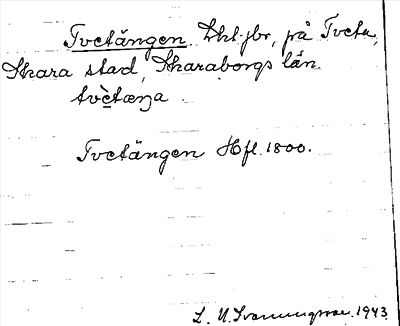 Tvetängen. Lht. jbr, på Tveta,
Skara stad, Skaraborgs län.
tvὲtæŋa
Tvetängen Hfl. 1800.
L. U. 1943